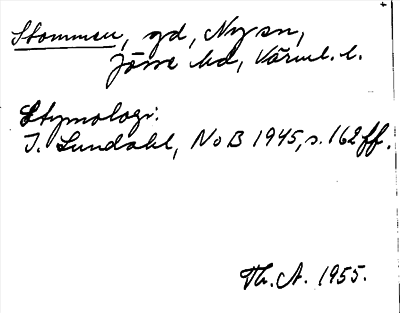 Stommen, gd, Ny sn,
Jösse hd, Värml. l.
Etymologi:
I. Lundahl, NoB 1945, s. 162 ff.
Th. A. 1955.